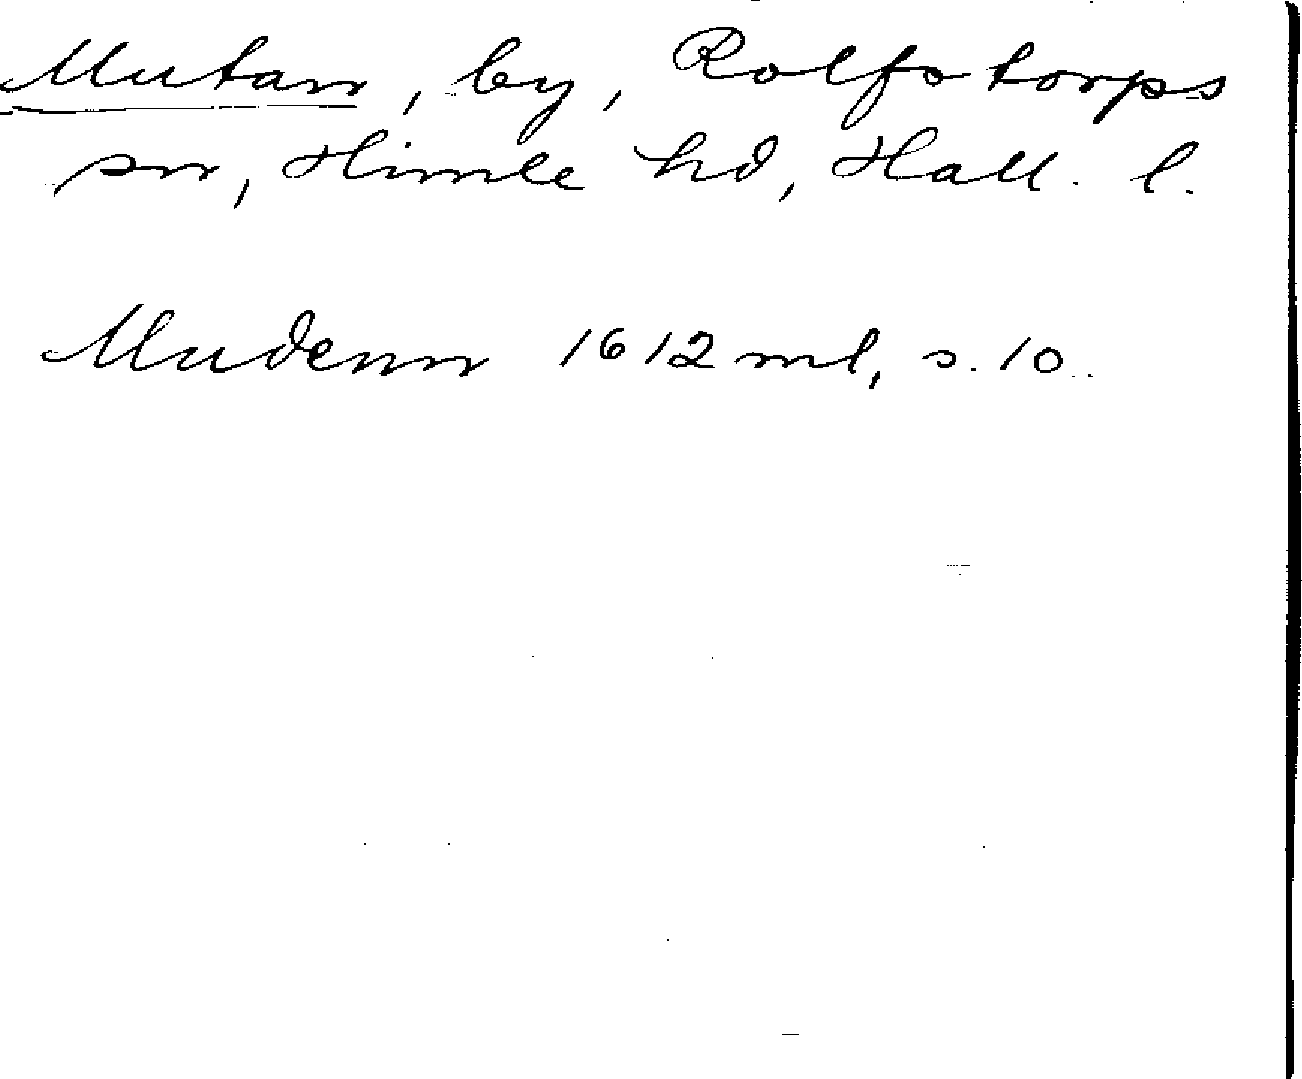 Mutan, by, Rolfstorps
sn, Himle hd, Hall. l.
Mudenn 1612 ml, s. 10.